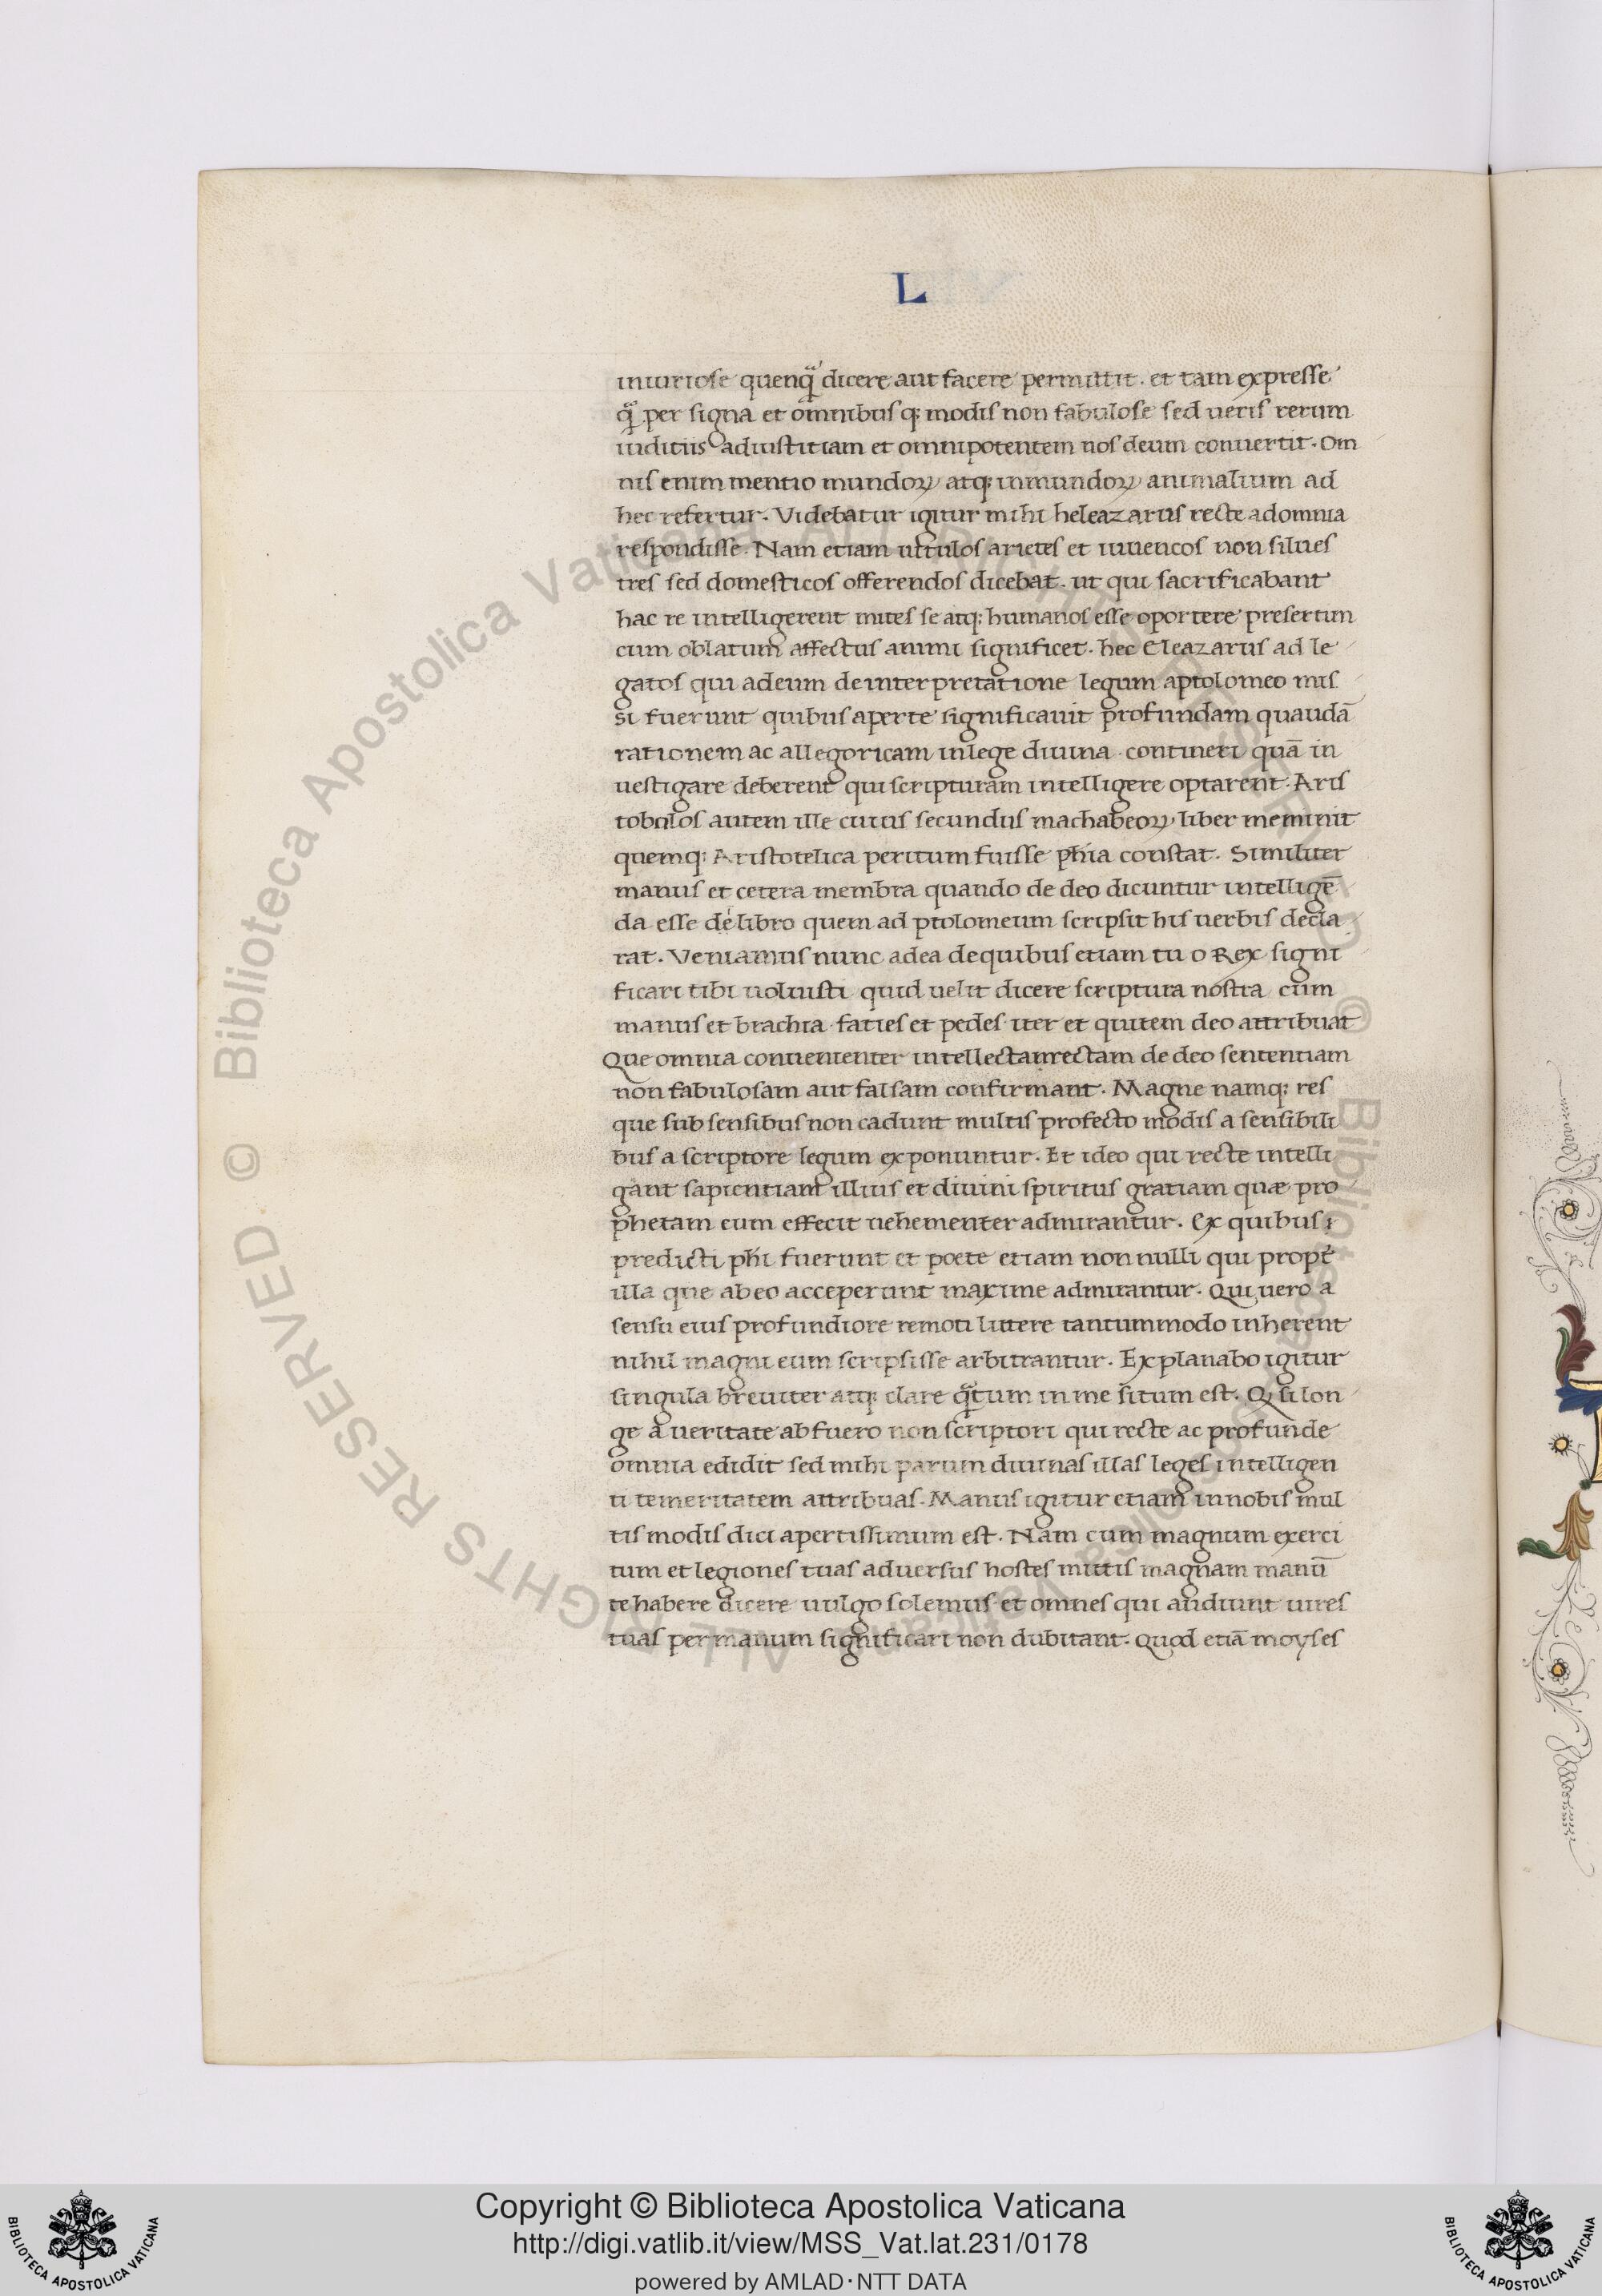 L
iniuriose quenqȝ̃ dicere aut facere permittit. et tam expresse
q̃ȝ per signa et omnibusqȝ modis non fabulose sed ueris rerum
iuditiis ad iustitiam et omnipotentem nos deum conuertit. Om
nis enim mentio mundoꝝ atqȝ inmundoꝝ animalium ad
hec refertur. Videbatur igitur mihi heleazarus recte ad omnia
respondisse. Nam etiam uitulos arietes et iuuencos non silues
tres sed domesticos offerendos dicebat. ut qui sacrificabant
hac re intelligerent mites se atqȝ humanos esse oportere presertim
cum oblatum affectus animi significet. hec Eleazarus ad le
gatos qui ad eum de interpretatione legum a ptolomeo mis
si fuerunt quibus aperte significauit profundam quandã
rationem ac allegoricam in lege diuina contineri quã in
uestigare deberent qui scripturam intelligere optarent. Aris
tobolos autem ille cuius secundus machabeoꝝ liber meminit
quemqȝ Aristotelica peritum fuisse phia constat. Similiter
manus et cetera membra quando de deo dicuntur intelligẽ
da esse de libro quem ad ptolomeum scripsit his uerbis decla
rat. Veniamus nunc ad ea de quibus etiam tu o Rex signi
ficari tibi uoluisti quid uelit dicere scriptura nostra cum
manus et brachia faties et pedes iter et quitem deo attribuat
Que omnia conuenienter intellecta rectam de deo sententiam
non fabulosam aut falsam confirmant. Magne namqȝ res
que sub sensibus non cadunt multis profecto modis a sensibili
bus a scriptore legum exponuntur. Et ideo qui recte intelli
gant sapientiam illius et diuini spiritus gratiam quæ pro
phetam eum effecit uehementer admirantur. Ex quibus
predicti phi fuerunt et poete etiam nonnulli qui propt̃
illa que ab eo acceperunt maxime admirantur. Qui uero a
sensu eius profundiore remoti littere tantummodo inherent
nihil magni eum scripsisse arbitrantur. Explanabo igitur
singula breuiter atqȝ clare qȝ̃tum in me situm est. Qȝ si lon
ge a ueritate abfuero non scriptori qui recte ac profunde
omnia edidit sed mihi parum diuinas illas leges intelligen
ti temeritatem attribuas. Manus igitur etiam in nobis mul
tis modis dici apertissimum est. Nam cum magnum exerci
tum et legiones tuas aduersus hostes mittis magnam manũ
te habere dicere uulgo solemus et omnes qui audiunt uires
tuas per manum significari non dubitant. Quod etiã moyses
© Biblioteca Apostolica Vaticana ALL RIGHTS RESERVED
© Biblioteca Apostolica Vaticana ALL RIGHTS RESERVED
BIBLIOTECA APOSTOLICA VATICANA
Copyright © Biblioteca Apostolica Vaticana
http://digi.vatlib.it/view/MSS_Vat.lat.231/0178
powered by AMLAD·NTT DATA
BIBLIOTECA APOSTOLICA VATICANA